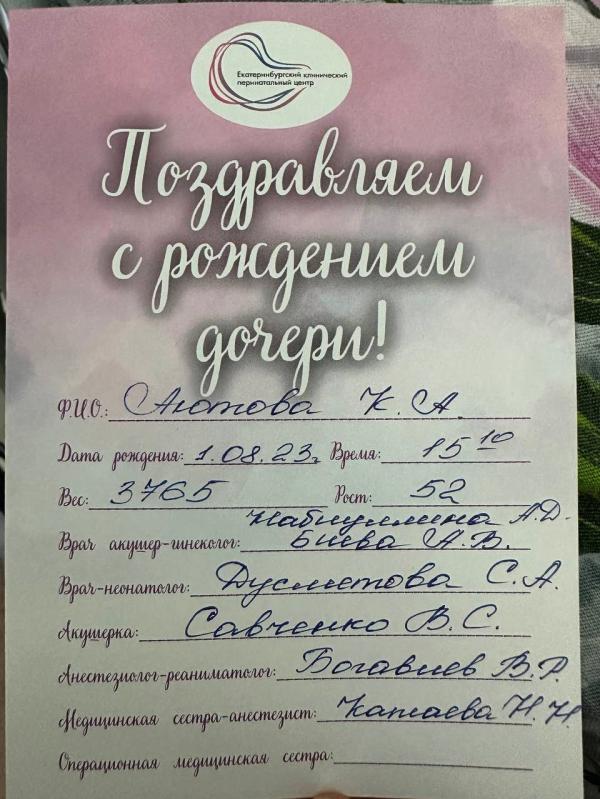 Екатеринбургский клинический
перинатальный центр
Поздравляем
с рождением
дочери!
Ф.И.О.: Аютова К. А.
Дата рождения: 1.08.23г Время: 15 10
Вес: 3765 Рост: 52
Набиуллина А.Д.
Врач акушер-гинеколог: Биева А.В.
Врач-неонатолог: Дусметова С.А.
Акушерка: Савченко В.С.
Анестезиолог-реаниматолог: Богавиев В.Р.
Медицинская сестра-анестезист: Катаева Н.Н.
Операционная медицинская сестра: